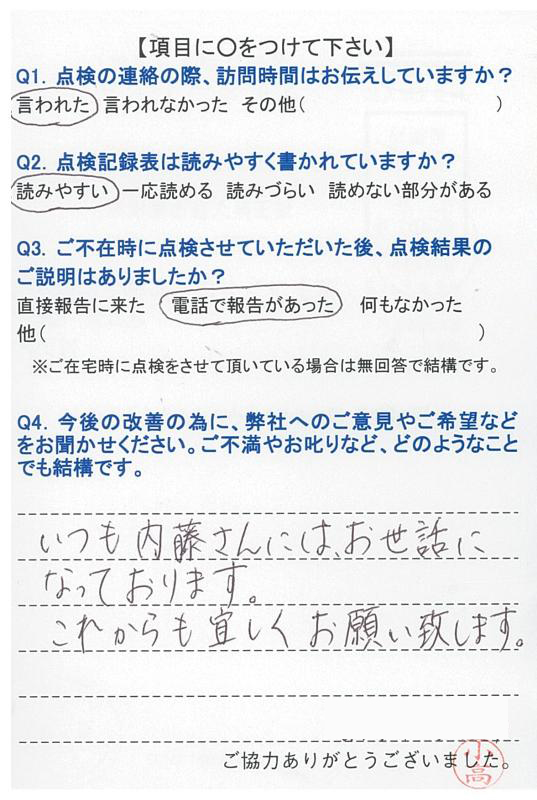 【項目に〇をつけて下さい】
Q1. 点検の連絡の際、訪問時間はお伝えしていますか？
言われた 言われなかった その他（ ）
Q2. 点検記録表は読みやすく書かれていますか？
読みやすい 一応読める 読みづらい 読めない部分がある
Q3. ご不在時に点検させていただいた後、点検結果の
ご説明はありましたか？
直接報告に来た 電話で報告があった 何もなかった
他（ ）
※ご在宅時に点検をさせて頂いている場合は無回答で結構です。
Q4. 今後の改善の為に、弊社へのご意見やご希望など
をお聞かせください。ご不満やお叱りなど、どのようなこと
でも結構です。
いつも内藤さんには、お世話に
なっております。
これからも宜しくお願い致します。
ご協力ありがとうございました。
小高